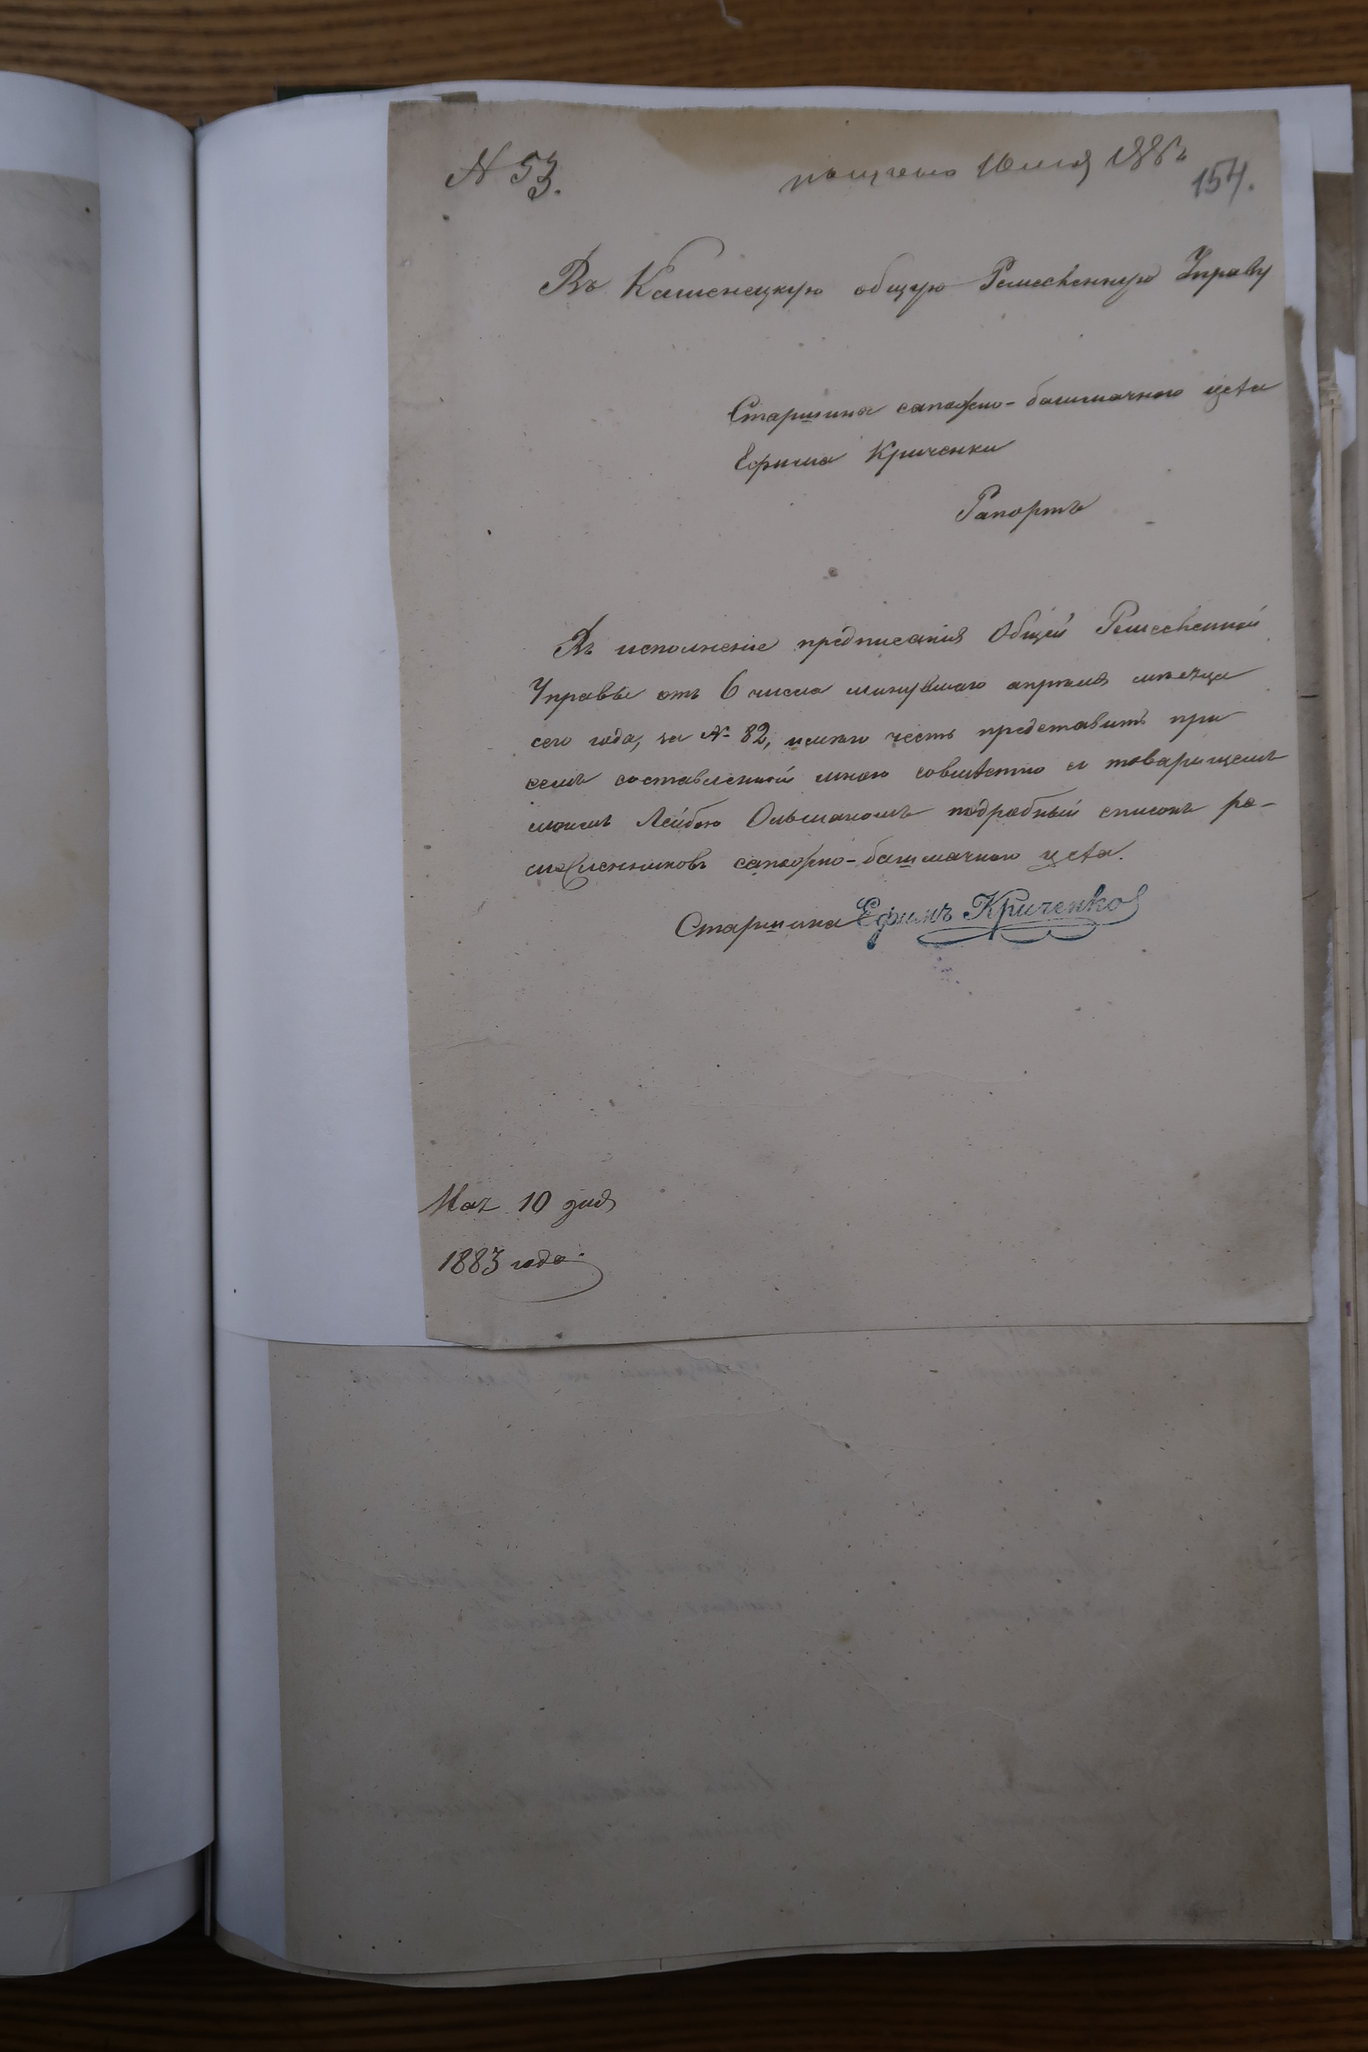 № 53.
получено 10 мая 1883 г.
154.
Въ Каменецкую общую Ремесленную Управу
Старшина сапожно-башмачного цеха
Ефима Криченки
Рапортъ
Въ исполненіе предписанія Общей Ремесленной
Управы отъ 6 числа минувшаго апрѣля мѣсяца
сего года, за № 82, имѣю честь представить при
семъ составленный мною совмѣстно съ товарищемъ
моимъ Лейбою Ольшаномъ подробный списокъ ре-
месленниковъ сапожно-башмачного цеха.
Старшина Ефимъ Криченко
Мая 10 дня
1883 года.